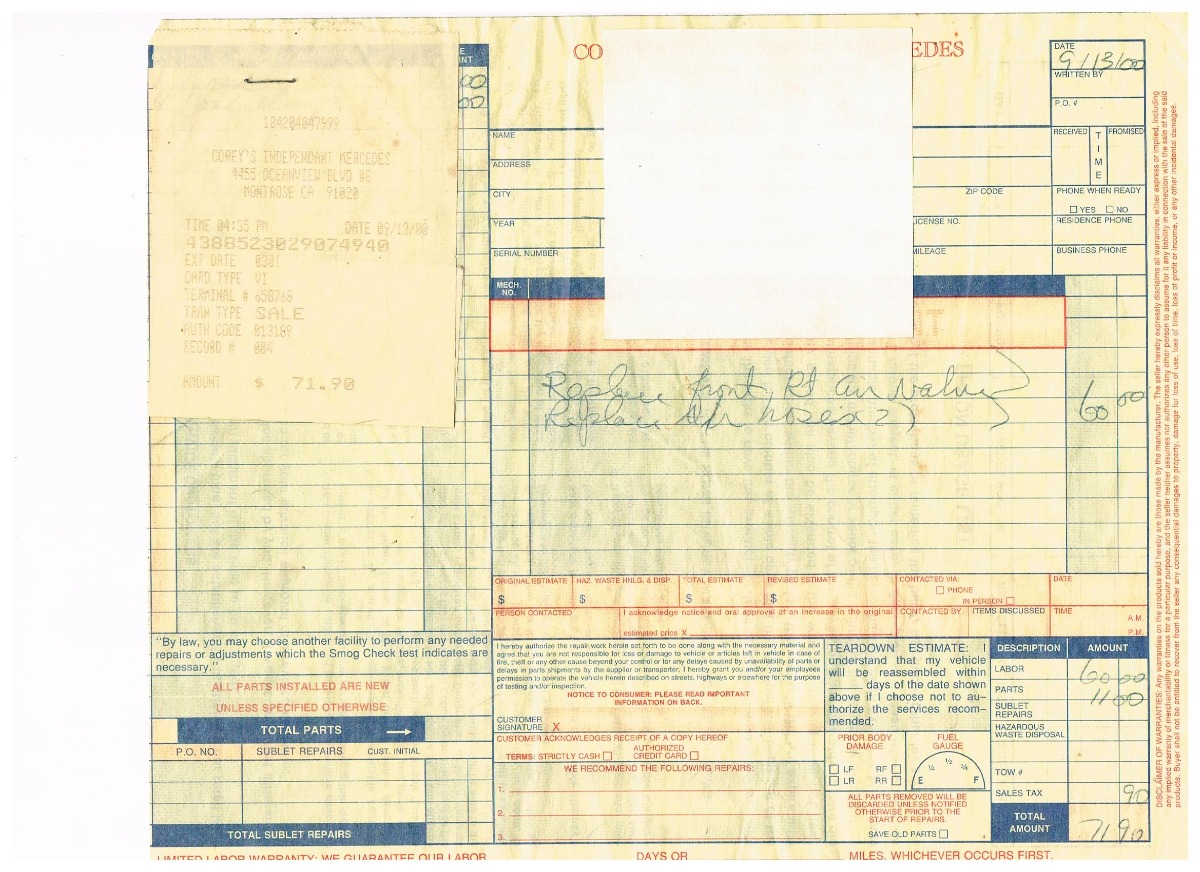 184204047999
COREY'S INDEPENDANT MERCEDES
4455 OCEANVIEW BLVD #E
MONTROSE CA 91020
TIME 04:55 PM DATE 09/13/00
4388523029074940
EXP DATE 0301
CARD TYPE VI
TERMINAL # 658768
TRAN TYPE SALE
AUTH CODE 013189
RECORD # 004
AMOUNT $ 71.90
CO EDES
DATE
9/13/00
WRITTEN BY
P.O. #
NAME
RECEIVED
TIME
PROMISED
ADDRESS
CITY
ZIP CODE
PHONE WHEN READY
YES NO
YEAR
LICENSE NO.
RESIDENCE PHONE
SERIAL NUMBER
MILEAGE
BUSINESS PHONE
MECH. NO.
Replace front Rt air valve
Replace air hoses 2)
60 00
ORIGINAL ESTIMATE HAZ. WASTE HNLG. & DISP. TOTAL ESTIMATE REVISED ESTIMATE CONTACTED VIA: DATE
PHONE
$ $ $ $ IN PERSON
PERSON CONTACTED I acknowledge notice and oral approval of an increase in the original CONTACTED BY ITEMS DISCUSSED TIME
A.M.
estimated price X P.M.
"By law, you may choose another facility to perform any needed
repairs or adjustments which the Smog Check test indicates are
necessary."
ALL PARTS INSTALLED ARE NEW
UNLESS SPECIFIED OTHERWISE
TOTAL PARTS
P.O. NO. SUBLET REPAIRS CUST. INITIAL
TOTAL SUBLET REPAIRS
I hereby authorize the repair work herein set forth to be done along with the necessary material and
agree that you are not responsible for loss or damage to vehicle or articles left in vehicle in case of
fire, theft or any other cause beyond your control or for any delays caused by unavailability of parts or
delays in parts shipments by the supplier or transporter. I hereby grant you and/or your employees
permission to operate the vehicle herein described on streets, highways or elsewhere for the purpose
of testing and/or inspection.
NOTICE TO CONSUMER: PLEASE READ IMPORTANT
INFORMATION ON BACK.
CUSTOMER
SIGNATURE X
CUSTOMER ACKNOWLEDGES RECEIPT OF A COPY HEREOF
TERMS: STRICTLY CASH AUTHORIZED CREDIT CARD
WE RECOMMEND THE FOLLOWING REPAIRS:
1.
2.
3.
TEARDOWN ESTIMATE: I
understand that my vehicle
will be reassembled within
____ days of the date shown
above if I choose not to au-
thorize the services recom-
mended.
PRIOR BODY
DAMAGE
LF RF
LR RR
FUEL
GAUGE
E 1/4 1/2 F
ALL PARTS REMOVED WILL BE
DISCARDED UNLESS NOTIFIED
OTHERWISE PRIOR TO THE
START OF REPAIRS.
SAVE OLD PARTS
DESCRIPTION AMOUNT
LABOR 60 00
PARTS 11 00
SUBLET
REPAIRS
HAZARDOUS
WASTE DISPOSAL
TOW #
SALES TAX 90
TOTAL
AMOUNT 71 90
DISCLAIMER OF WARRANTIES: Any warranties on the products sold hereby are those made by the manufacturer. The seller hereby expressly disclaims all warranties, either express or implied, including
any implied warranty of merchantability or fitness for a particular purpose, and the seller neither assumes nor authorizes any other person to assume for it any liability in connection with the sale of the said
products. Buyer shall not be entitled to recover from the seller any consequential damages, damages to property, damages for loss of use, loss of time, loss of profit or income, or any other incidental damages.
LIMITED LABOR WARRANTY: WE GUARANTEE OUR LABOR DAYS OR MILES, WHICHEVER OCCURS FIRST.